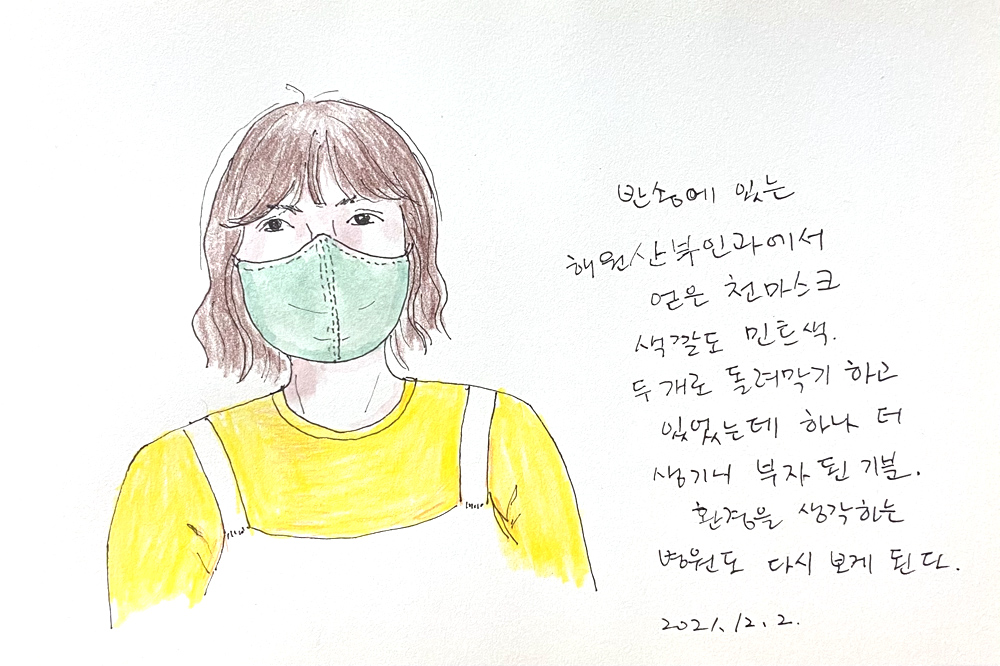 반송에 있는
해원산부인과에서
얻은 천마스크
색깔도 민트색.
두개로 돌려막기 하고
있었는데 하나 더
생기니 부자 된 기분.
환경을 생각하는
병원도 다시 보게 된다.
2021. 12. 2.